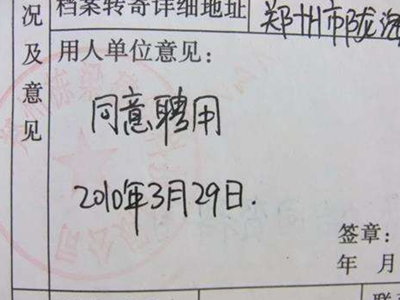 况及意见
档案转寄详细地址
郑州市陇海
用人单位意见：
同意聘用
2010年3月29日.
签章：
年 月